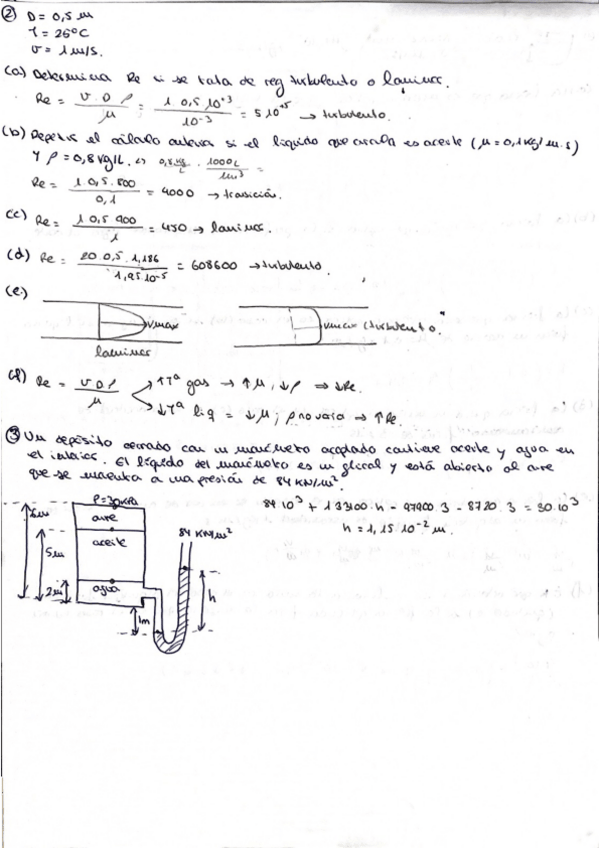 ② D = 0,5 m
T = 25ºC
v = 1 m/s.
(a) Determina Re si se trata de reg turbulento o laminar.
Re = v·D·ρ / μ = 1·0,5·10⁺³ / 10⁻³ = 5·10⁺⁵ → turbulento.
(b) Repetir el cálculo anterior si el líquido que circula es aceite (μ = 0,1 kg/m·s)
y ρ = 0,8 kg/L. ↔ 0,8 kg/L · 1000L/1m³ =
Re = 1·0,5·800 / 0,1 = 4000 → transición.
(c) Re = 1·0,5·900 / 1 = 450 → laminar.
(d) Re = 20·0,5·1,186 / 1,95·10⁻⁵ = 608600 → turbulento.
(e)
vmax
vmax (turbulento"
laminar
(f) Re = v·D·ρ / μ
↑Tª gas → ↑μ, ↓ρ ⇒ ↓Re.
↓Tª liq = ↓μ; ρ no varía → ↑Re.
③ Un depósito cerrado con un manómetro acoplado contiene aceite y agua en
el interior. El líquido del manómetro es un glicol y está abierto al aire
que se encuentra a una presión de 84 KN/m²
84·10³ + 13300·h - 9800·3 - 8720·3 = 30·10³
h = 1,15·10⁻² m.
P=30KPa
aire
aceite
agua
84 KN/m²
5m
2m
1m
h